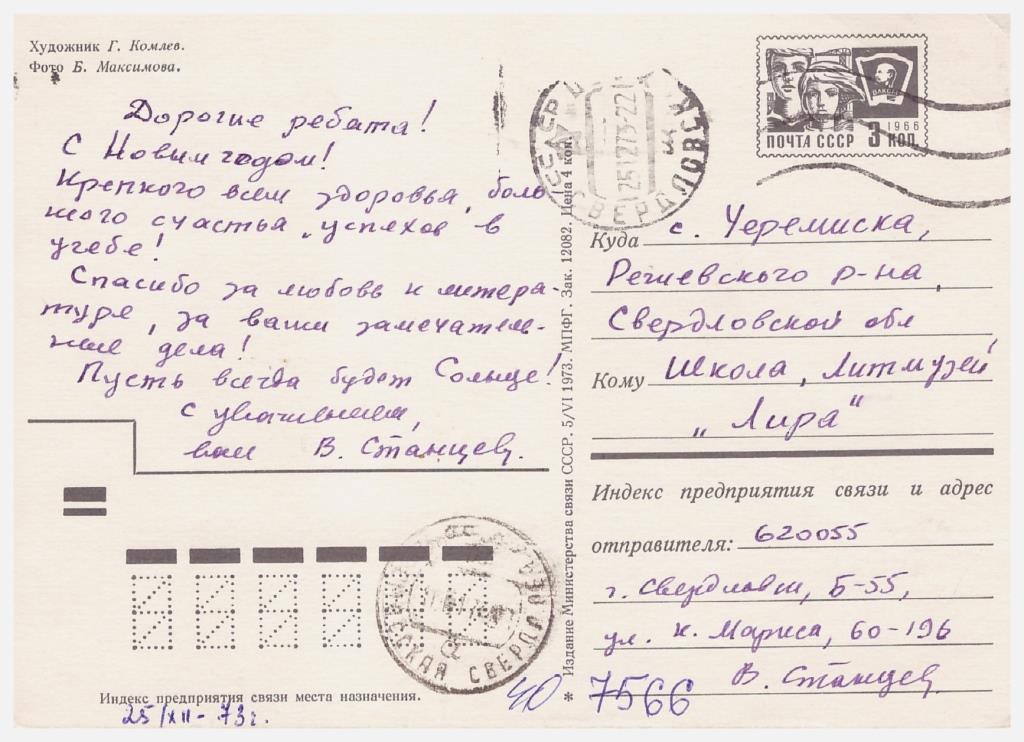 Художник Г. Комлев.
Фото Б. Максимова.
Дорогие ребята!
С Новым годом!
Крепкого всем здоровья, боль-
шого счастья, успехов в
учебе!
Спасибо за любовь к литера-
туре, за ваши замечатель-
ные дела!
Пусть всегда будет Солнце!
с уважением,
ваш В. Станцев.
Индекс предприятия связи места назначения.
25/XII-73г.
СВЕРДЛОВСК
251273-22
Издание Министерства связи СССР. 5/VI 1973. МПФГ. Зак. 12082. Цена 4 коп.
ВЛКСМ
1966
ПОЧТА СССР 3 КОП.
Куда с. Черемиска,
Режевского р-на,
Свердловской обл
Кому Школа, Литмузей
„Лира"
Индекс предприятия связи и адрес
отправителя: 620055
г. Свердловск, Б-55,
ул. К. Маркса, 60-196
В. Станцев.
40 * 7566